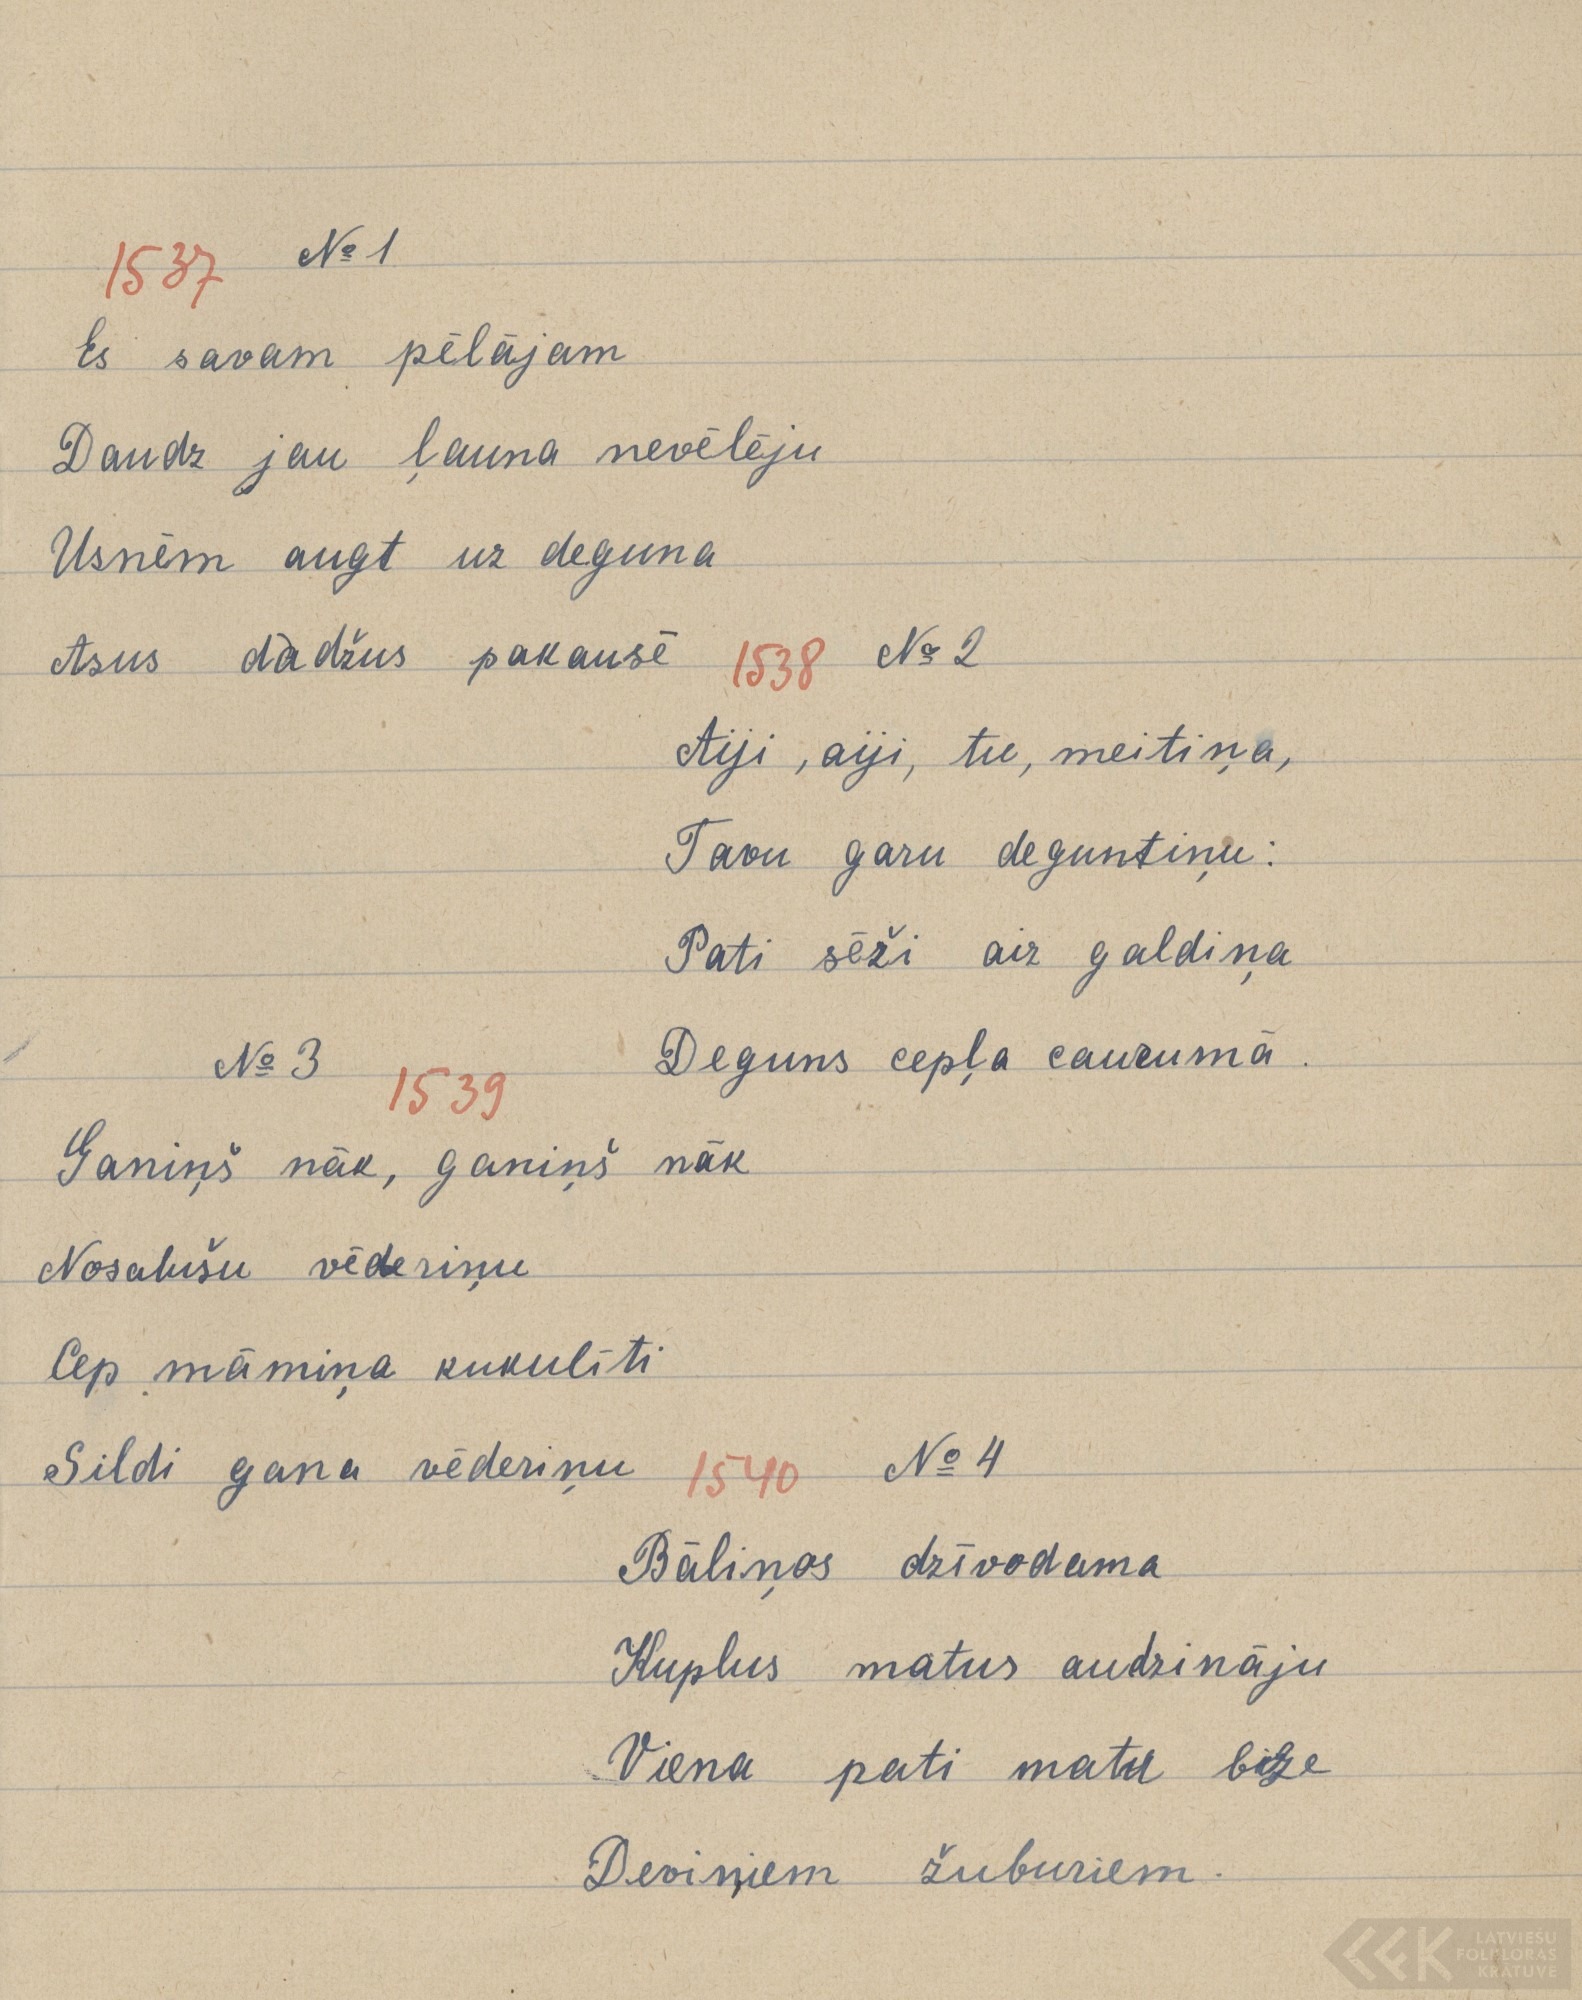 1537 № 1
Es savam pēlājam
Daudz jau ļauna nevēlēju
Usnēm augt uz deguna
Asus dadžus pakausē
1538 № 2
Aiji, aiji, tu, meitiņa,
Tavu garu deguntiņu:
Pati sēži aiz galdiņa
Deguns cepļa caurumā.
№ 3 1539
Ganiņš nāk, ganiņš nāk
Nosalušu vēderiņu
Cep māmiņa kukulīti
Sildi gana vēderiņu
1540 № 4
Bāliņos dzīvodama
Kuplus matus audzināju
Viena pati matu bize
Deviņiem žuburiem.
LATVIEŠU
FOLKLORAS
KRĀTUVE